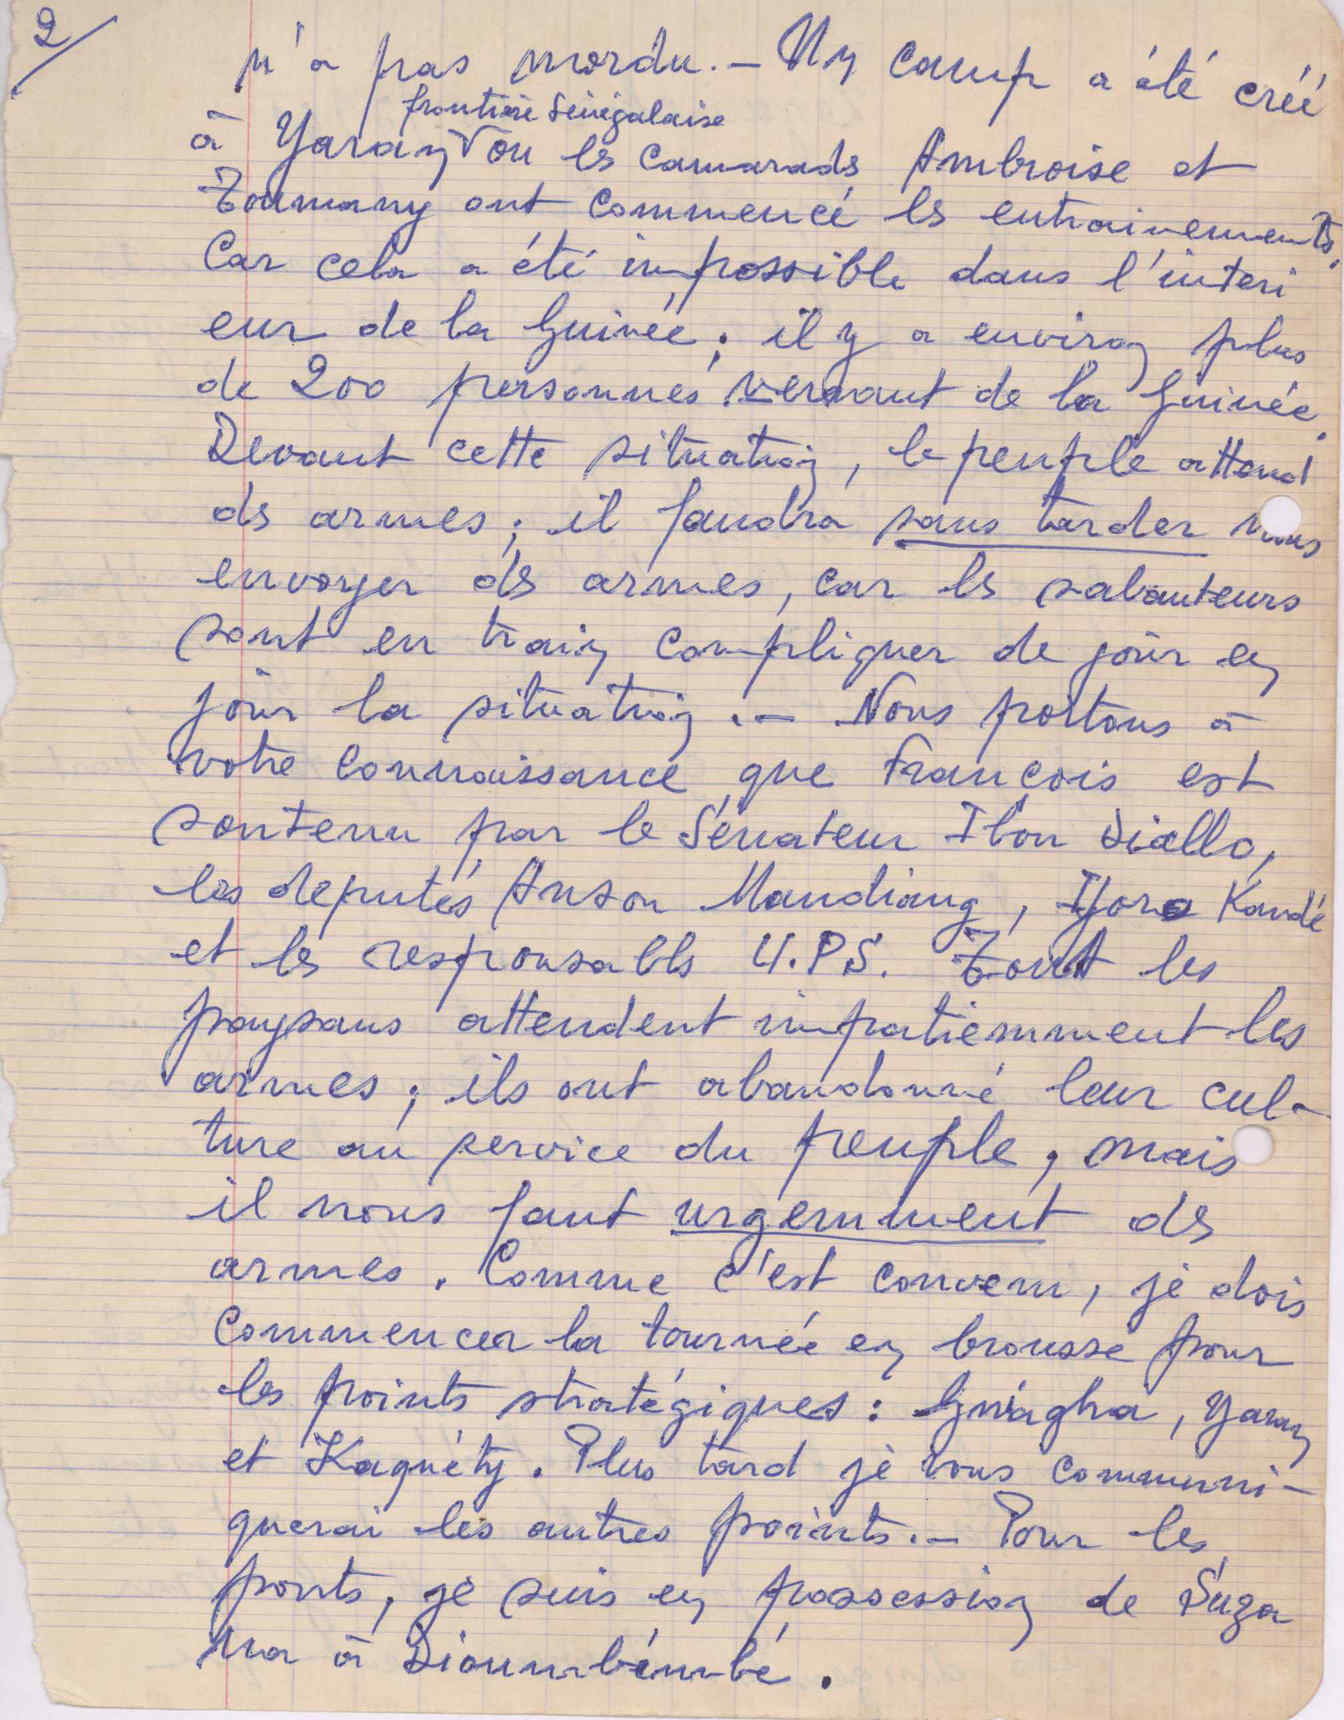 2/
n'a pas mordu. – Un camp a été créé
frontière Sénégalaise
à Yaran où les camarads Ambroise et
Toumany ont commencé les entrainements,
Car cela a été impossible dans l'interi
eur de la Guinée ; il y a environ plus
de 200 personnes venant de la Guinée.
Devant cette situation, le peuple attend
ds armes ; il faudra sans tarder nous
envoyer ds armes, car les saboteurs
sont en train compliquer de jour en
jour la situation . – Nous portons à
votre connaissance que François est
soutenu par le Sénateur Ibou Diallo,
les deputés Ansou Mandiang, Yoro Kandé
et les responsabls U.P.S. Tout les
paysans attendent impatiemment les
armes ; ils ont abandonné leur cul-
ture au service du peuple, mais
il nous faut urgemment ds
armes. Comme c'est convenu, je dois
commencer la tournée en brousse pour
les points stratégiques : Yaran
et Kaguéty. Plus tard je vous communi-
querai les autres points. – Pour les
ponts, je suis en possession de
à Dioumbémbé.